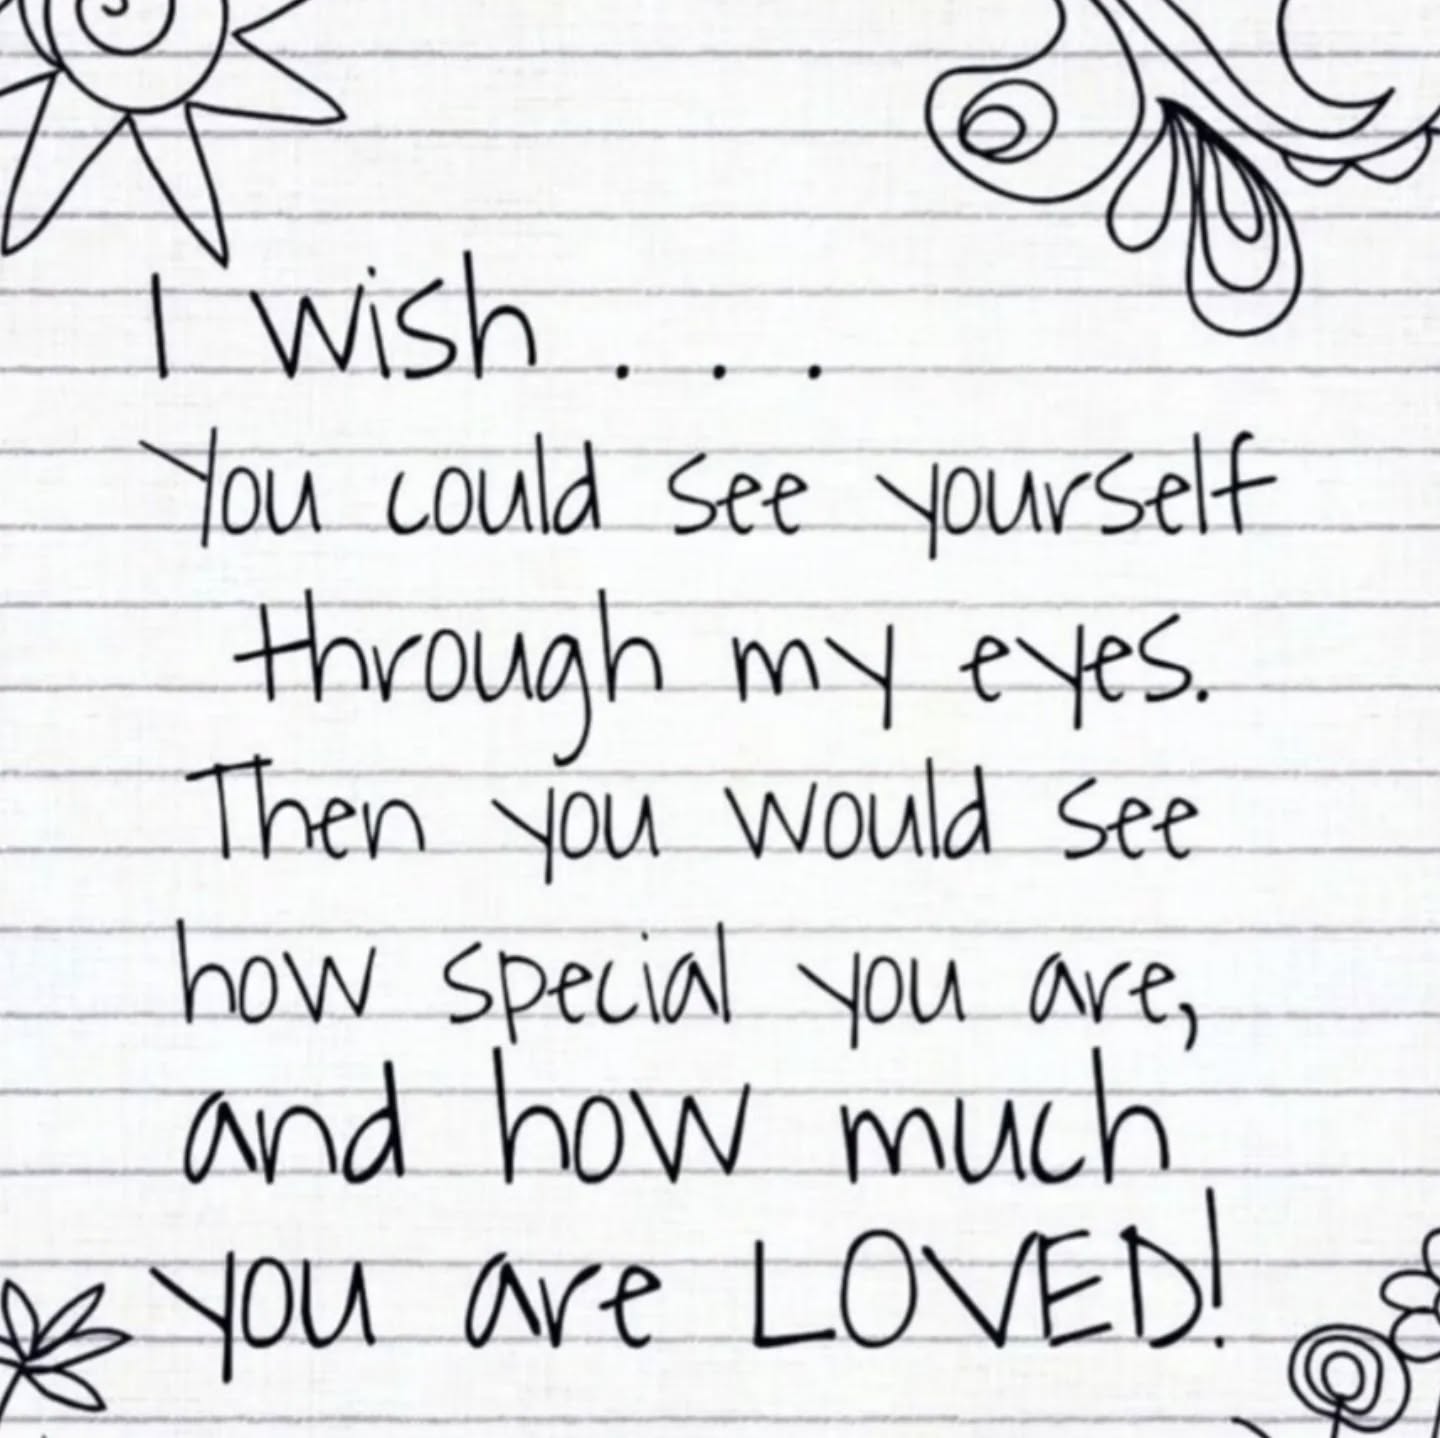 I wish . . .
You could see yourself
through my eyes.
Then you would see
how special you are,
and how much
you are LOVED!